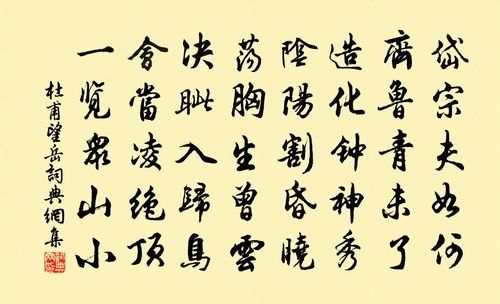 岱宗夫如何
齊魯青未了
造化钟神秀
陰陽割昏曉
荡胸生曾雲
决眦入歸鳥
會當凌绝顶
一览眾山小
杜甫望岳詞典網集